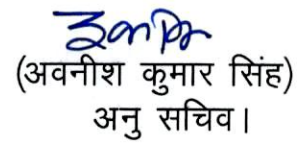 (अवनीश कुमार सिंह)
अनु सचिव।